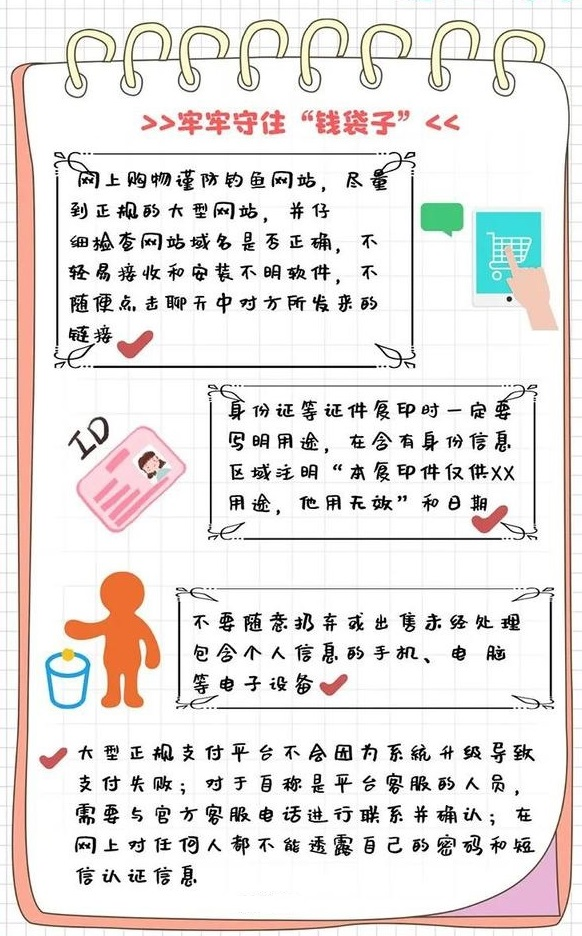 >>牢牢守住“钱袋子”<<
网上购物谨防钓鱼网站，尽量
到正规的大型网站，并仔
细检查网站域名是否正确，不
轻易接收和安装不明软件，不
随便点击聊天中对方所发来的
链接
ID
身份证等证件复印时一定要
写明用途，在含有身份信息
区域注明“本复印件仅供XX
用途，他用无效”和日期
不要随意扔弃或出售未经处理
包含个人信息的手机、电脑
等电子设备
大型正规支付平台不会因为系统升级导致
支付失败；对于自称是平台客服的人员，
需要与官方客服电话进行联系并确认；在
网上对任何人都不能透露自己的密码和短
信认证信息